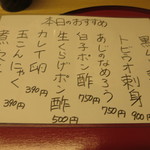 本日のおすすめ
トビウオ刺身
900
あじのなめろう
750
白子ポン酢
750
生くらげポン酢
500円
カレイ印
390円
玉こんにゃく
390